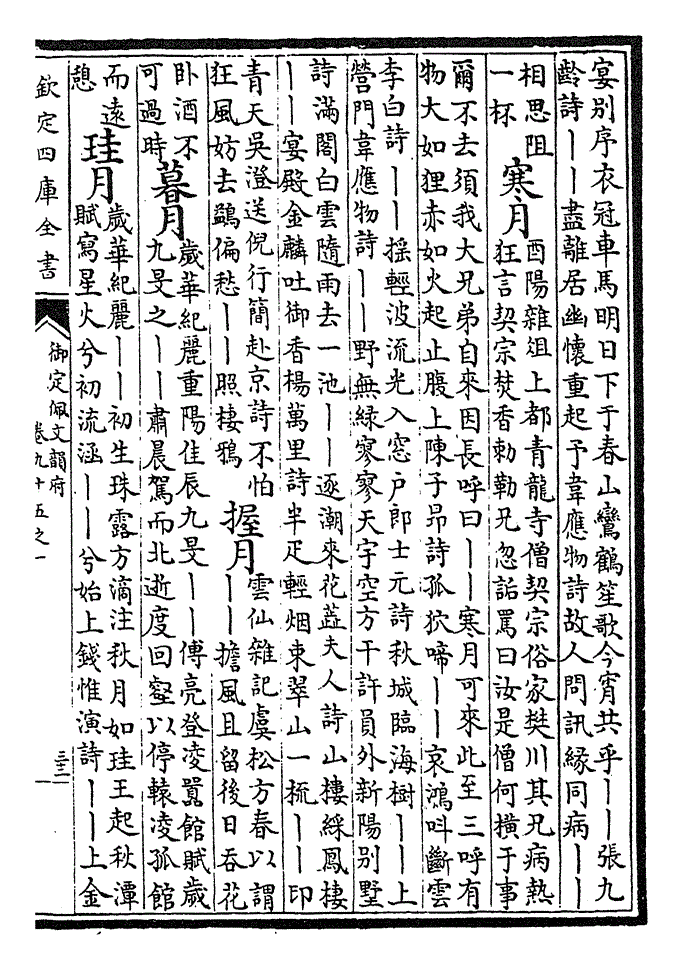 宴别序衣冠車馬明日下于春山鸞鶴笙歌今宵共乎丨丨張九
齡詩丨丨盡離居幽懷重起予韋應物詩故人問訊縁同病丨丨
相思阻
一杯
寒月
酉陽雜俎上都青龍寺僧契宗俗家樊川其兄病熱
狂言契宗焚香勅勒兄忽詬罵曰汝是僧何横于事
爾不去須我大兄弟自來因長呼曰丨丨寒月可來此至三呼有
物大如狸赤如火起止腹上陳子昻詩孤狖啼丨丨哀鴻呌斷雲
李白詩丨丨揺輕波流光入窓户郎士元詩秋城臨海樹丨丨上
營門韋應物詩丨丨野無緑寥寥天宇空方干許員外新陽别墅
詩滿閣白雲隨雨去一池丨丨逐潮來花蕋夫人詩山樓綵鳳棲
丨丨宴殿金麟吐御香楊萬里詩半疋輕烟束翠山一梳丨丨印
青天吳澄送倪行簡赴京詩不怕
狂風妨去鷁偏愁丨丨照棲鴉
握月
雲仙雜記虞松方春以謂
丨丨擔風且留後日吞花
卧酒不
可過時
暮月
歲華紀麗重陽佳辰九旻丨丨傅亮登凌嚻館賦歲
九旻之丨丨肅晨駕而北逝度回壑以停轅凌孤館
而遠
憩
珪月
歲華紀麗丨丨初生珠露方滴注秋月如珪王起秋潭
賦寫星火兮初流涵丨丨兮始上錢惟演詩丨丨上金
欽定四庫全書
御定佩文韻府
卷九十五之一
三十二